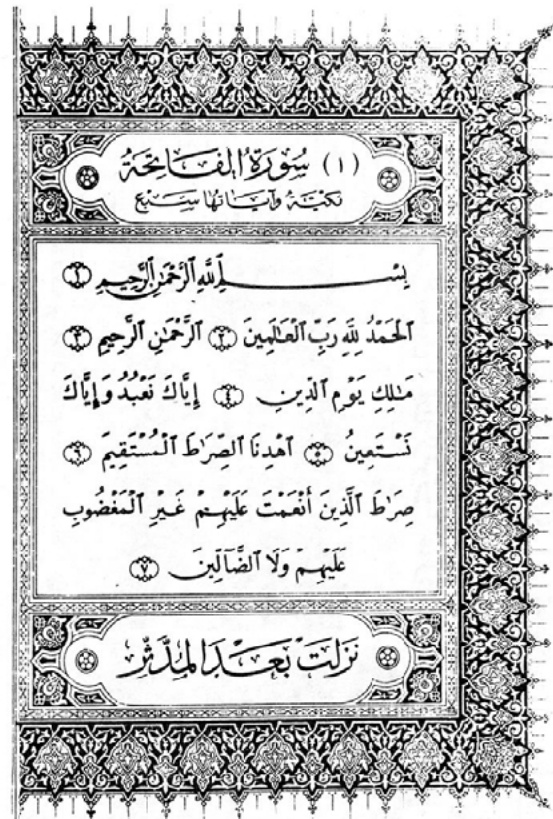 (١) سُورَةُ الفَاتِحَة
مَكِيَّة وَآيَاتُهَا سَبْع
بِسْمِ اللَّهِ الرَّحْمَٰنِ الرَّحِيمِ ۝١
الْحَمْدُ لِلَّهِ رَبِّ الْعَالَمِينَ ۝٢ الرَّحْمَٰنِ الرَّحِيمِ ۝٣
مَالِكِ يَوْمِ الدِّينِ ۝٤ إِيَّاكَ نَعْبُدُ وَإِيَّاكَ
نَسْتَعِينُ ۝٥ اهْدِنَا الصِّرَاطَ الْمُسْتَقِيمَ ۝٦
صِرَاطَ الَّذِينَ أَنْعَمْتَ عَلَيْهِمْ غَيْرِ الْمَغْضُوبِ
عَلَيْهِمْ وَلَا الضَّآلِّينَ ۝٧
نَزَلَتْ بَعْدَ الْمُدَّثِّر